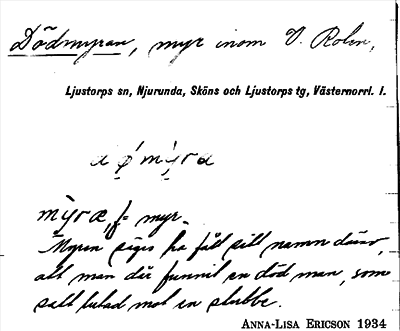 Dödmyran, myr inom V. Rolen,
Ljustorps sn, Njurunda, Sköns och Ljustorps tg, Västernorrl. l.
myræ, f= myr.
Myren säges ha fått sitt namn därav,
att man där funnit en död man, som
satt lutad mot en stubbe.
ANNA-LISA ERICSON 1934